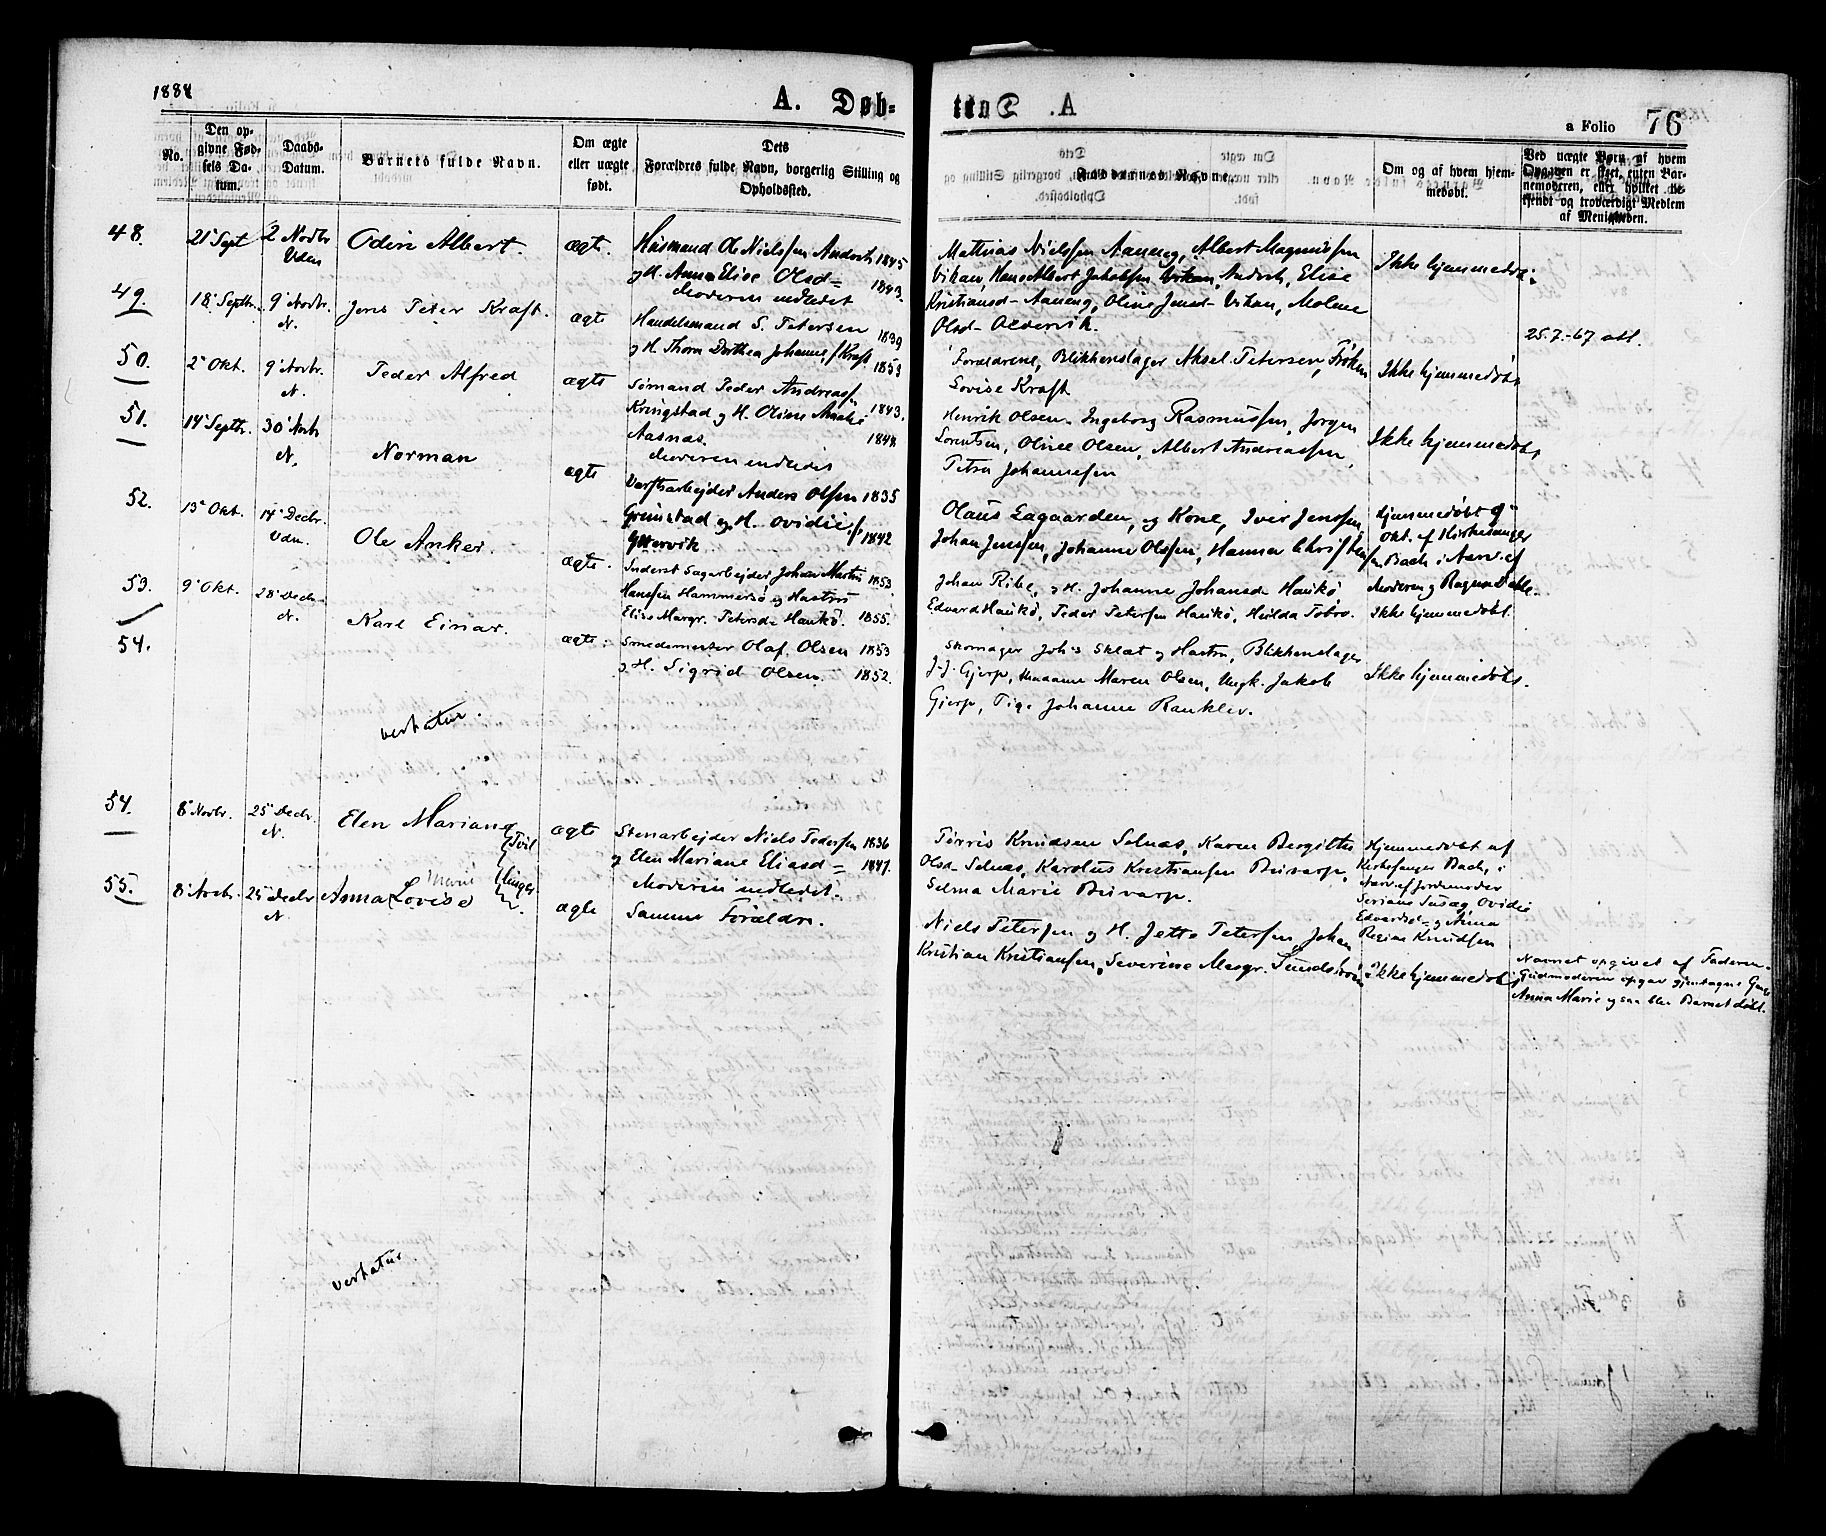 1884
A. Døb-
A. Døbte
a Folio 76
No.
Den op-
givne Fød-
sels Da-
tum.
Daabs-
Datum.
Barnets fulde Navn.
Om ægte
eller uægte
født.
Dets
Forældres fulde Navn, borgerlig Stilling og
Opholdssted.
Faddernes Navne.
Om og af hvem hjem-
medøbt.
Ved uægte Børn af hvem
Opgaven er skeet, enten Bar-
nemoderen, eller hvilket be-
kjendt og troværdigt Medlem
af Menigheden.
48. 21 Sept 2 Novbr
Uden
Odin Albert. ægte.
Husmand Ole Nielssen Andorsk 1845
og H. Anna Elise Olsd= 1843.
Moderen indledet
Mathias Nielssen Aaneng, Albert Magnussen
Vikan, Hans Albert Jakobssen Vikan, Andorsk, Elise
Kristiansd- Aaneng, Oline Jensd- Vikan, Molene
Olsd- Oldervik.
Ikke hjemmedøbt.
49. 18 Septbr. 9 Novbr.
N.
Jens Peter Kraft. ægte
Handelsmand S. Petersen 1839
og H. Thora Dorthea Johanne f. Kraft 1859
Forældrene, Blikkenslager Aksel Petersen, Frøken
Lovise Kraft
Ikke hjemmedøbt
25.7.-67 att.
50. 2 Okt. 9 Novbr.
N.
Peder Alfred ægte
Sømand Peder Andreass
Kringstad og H. Oline 1843.
Aasnæs. 1844
Moderen indledet
Henrik Olsen, Ingeborg Rasmussen, Jørgen
Lorentsen, Oline Olsen, Albert Andreassen,
Petra Johannesen
Ikke hjemmedøbt
51. 14 Septbr. 30 Novbr
N.
Norman ægte
Verftsarbejder Anders Olsen 1835
Grimstad og H. Ovidie f. 1842
Yttervik.
Olaus Lagaarden, og Kone, Iver Jenssen
Johan Jenssen, Johanne Olssen, Hanna Christen
sen
Hjemmedøbt 9
Okt. af Kirkesanger
Bach i Nærv. af
Moderen og Ragna Dahle.
52. 15 Okt. 14 Decbr.
Udn.
Ole Anker. ægte.
Inderst Sagarbejder Johan Martin 1853
Hanssen Hammersø og Hustru
Elise Margr. Petersd. Haukø. 1855.
Johan Ribe, og H. Johanne Johansd Haukø,
Edvard Haukø, Peder Petersen Haukø, Hulda Tobro.
Ikke hjemmedøbt.
53. 9 Okt. 28 Decbr
N.
Karl Einar. ægte.
Smedemester Olaf Olsen 1853
og H. Sigrid Olsen. 1852.
Skomager Johs Sklæt og Hustru, Blikkenslager
J. J. Gjerp, Madame Maren Olsen, Ungk. Jakob
Gjerp, Pige Johanne Ranklev.
Ikke hjemmedøbt.
54.
vertatur.
54. 8 Novbr. 25 Decbr.
N.
Elen Mariane
Tvil
ægte
Stenarbejder Niels Pedersen 1836
og Elen Mariane Eliasd = 1847.
Moderen indledet.
Tørris Knudsen Selnæs, Karen Bergitte
Olsd- Selnæs, Karolus Kristiansen Busvarp,
Selma Marie Busvarp.
Hjemmedøbt af
Kirkesanger Bach, i
Nærv. af Jordemoder
Seriane Ovidie
Edvardsd- og Anna
Regine Knudsen
55. 8 Novbr. 25 Decbr
N
Marie
Anna (Lovise)
linger
ægte
Samme Forældre.
Niels Petersen og H. Jette Petersen, Johan
Kristian Kristiansen, Severine Margr. Sundstrøm
Ikke hjemmedøbt
Navnet opgivet af Faderen.
Gudmoderen opgav gjentagne Gange
Anna Marie og saa blev Barnet døbt.
vertatur